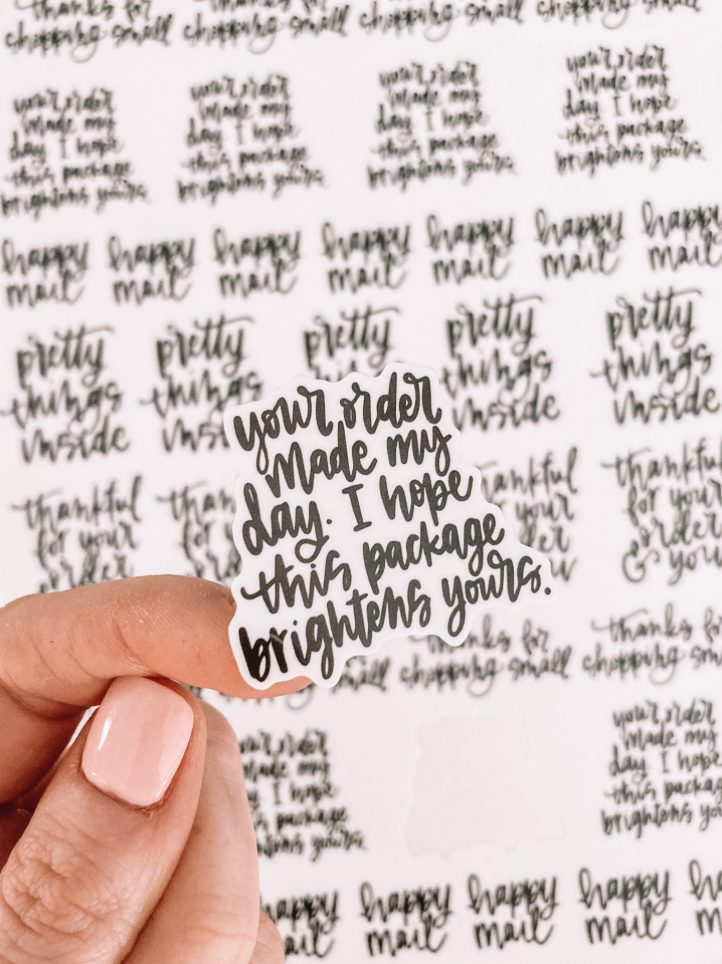 thanks for
shopping small
shopping small
shopping small
shopping small
your order
made my
day. I hope
this package
brightens yours.
your order
made my
day. I hope
this package
brightens yours.
your order
made my
day. I hope
this package
brightens yours.
your order
made my
day. I hope
this package
brightens yours.
happy
mail
happy
mail
happy
mail
happy
mail
happy
mail
happy
mail
happy
mail
pretty
things
inside
pretty
things
pretty
pretty
things
inside
pretty
things
inside
your order
made my
day. I hope
this package
brightens yours.
thankful
for your
order
for
thankful
for your
order
& you
thanks for
shopping small
thanks for
shopping small
your order
made my
day. I hope
this package
brightens yours.
your order
made my
day. I hope
this
brightens
happy
mail
happy
mail
happy
mail
happy
mail